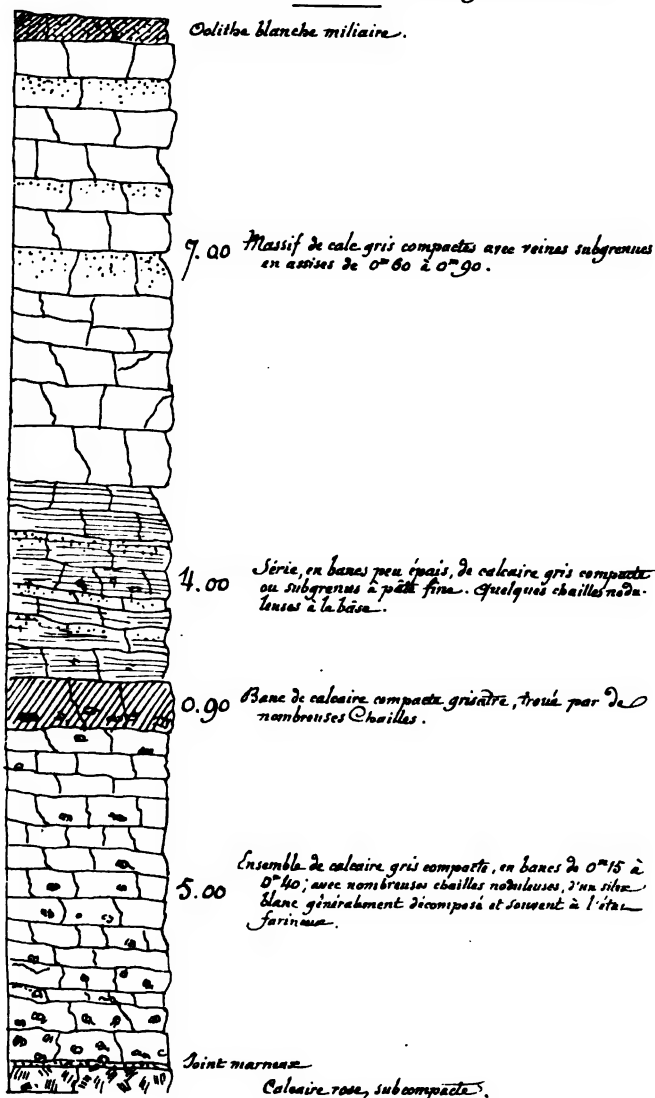 Oolithe blanche miliaire.
7.00 Massif de calc gris compactes avec veines subgrenues
en assises de 0m60 à 0m90.
4.00 Série, en bancs peu épais, de calcaire gris compacte
ou subgrenus à pâte fine. Quelques chailles nodu-
leuses à la base.
0.90 Banc de calcaire compacte grisâtre, troué par de
nombreuses Chailles.
5.00 Ensemble de calcaire gris compacte, en bancs de 0m15 à
0m40; avec nombreuses chailles noduleuses, d'un silex
blanc généralement décomposé et souvent à l'état
farineux.
Joint marneux
Calcaire rose, subcompacte.